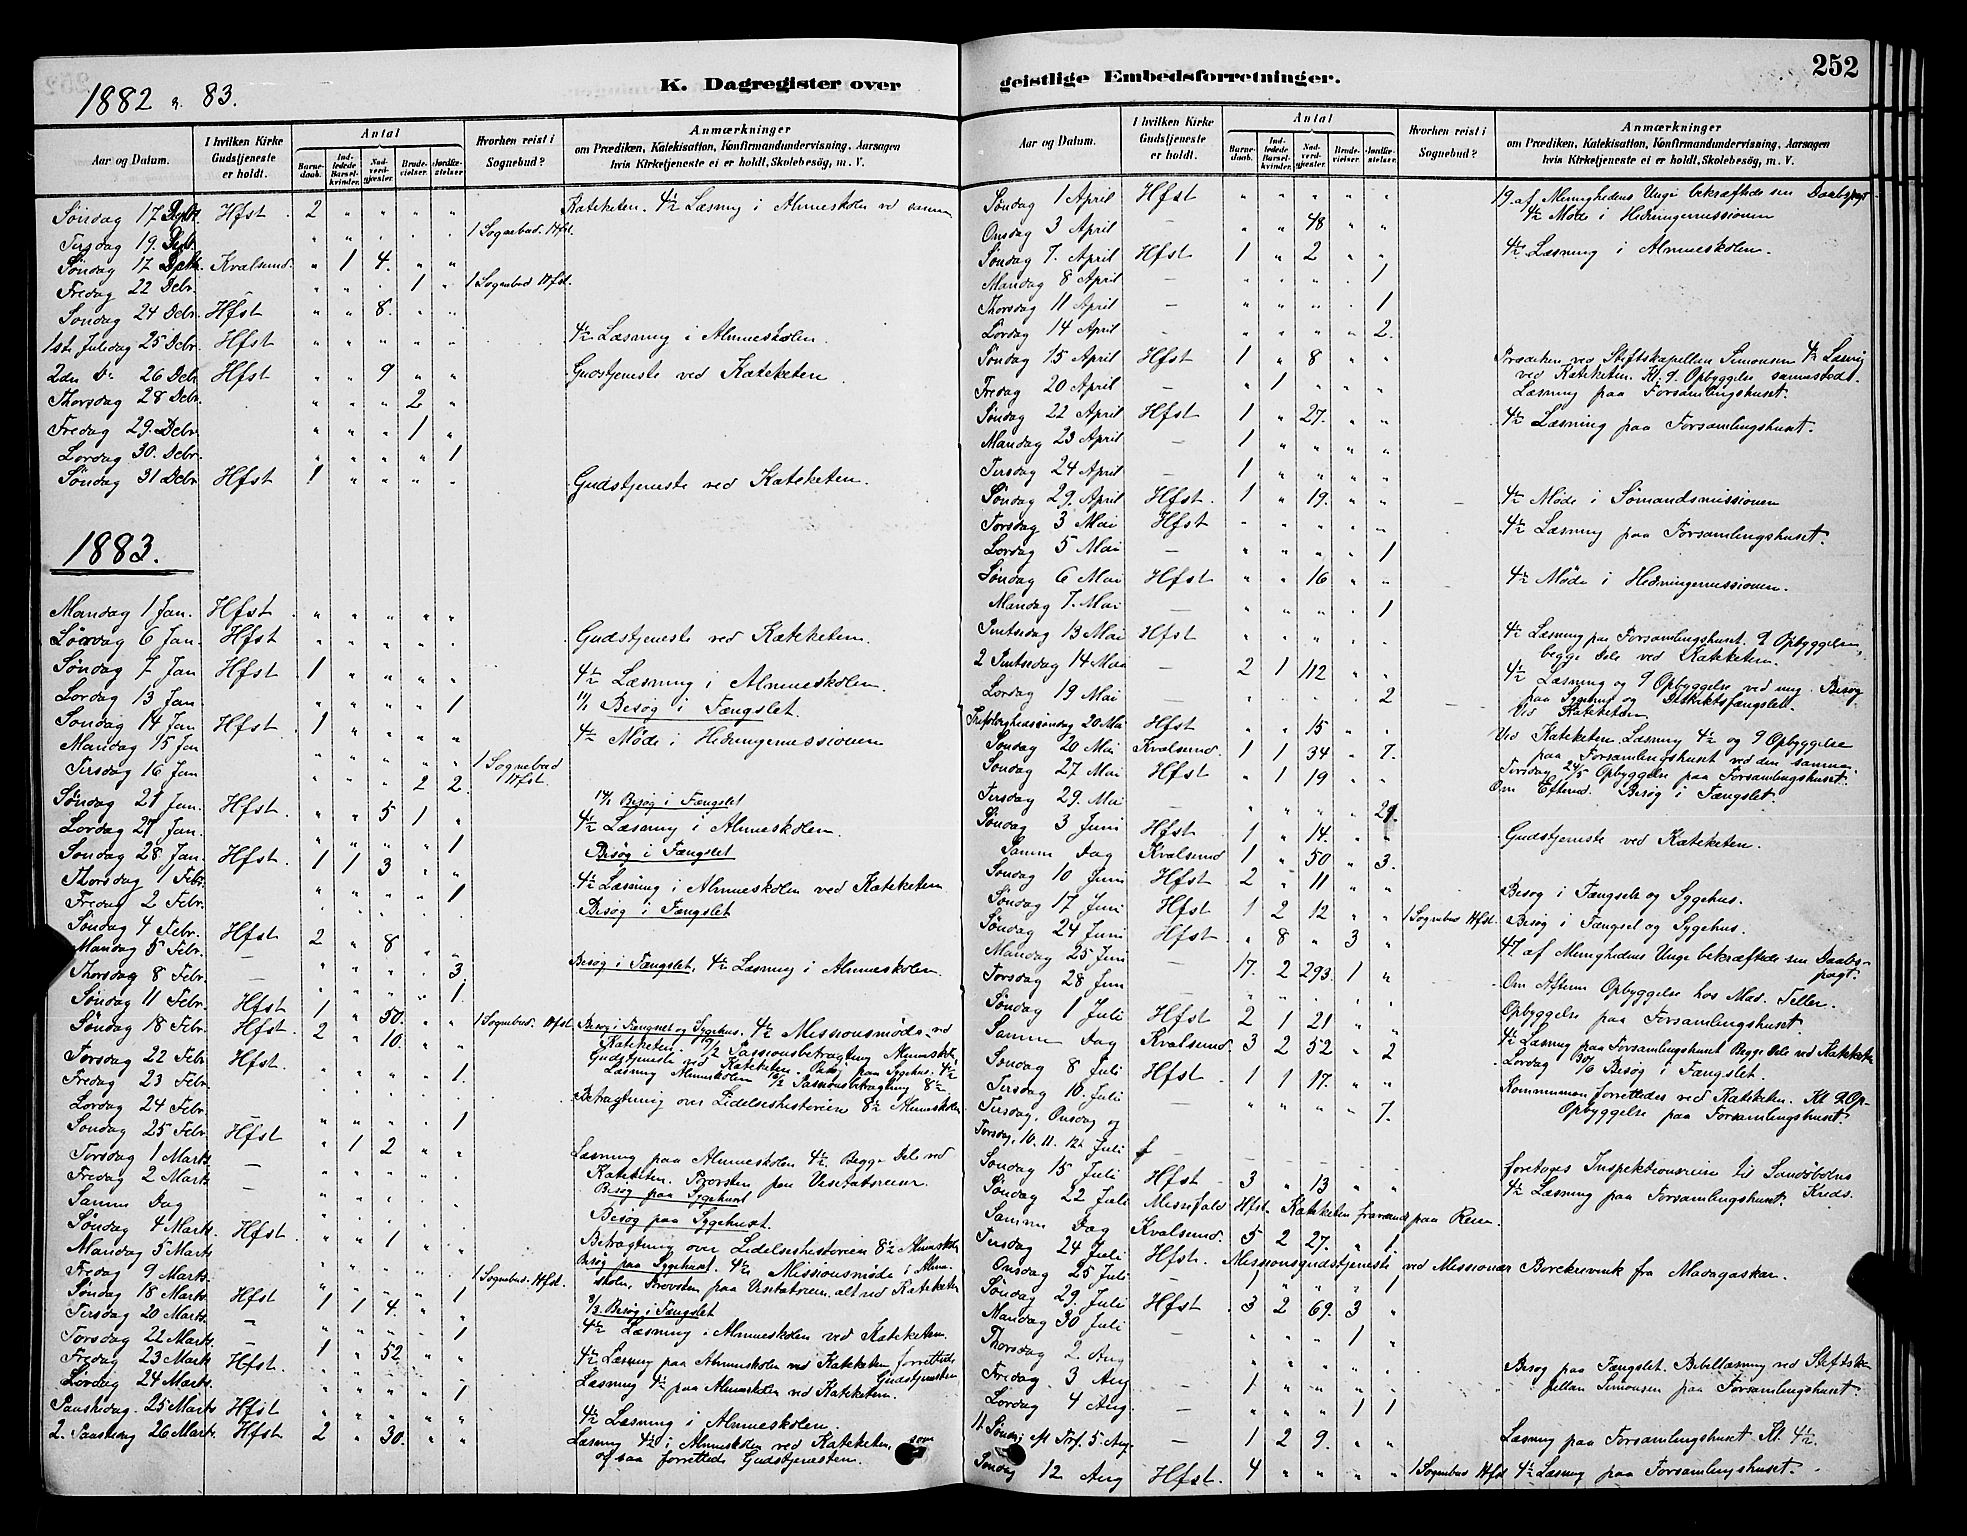 1882 & 83.
K. Dagregister over
Aar og Datum. | I hvilken Kirke Gudstjeneste er holdt. | Antal | Barnedaab. | Indledede Barselkvinder. | Nadverdgjæster. | Brudevielser. | Jordfæstelser. | Hvorhen reist i Sognebud? | Anmærkninger om Prædiken, Katekisation, Konfirmandundervisning, Aarsagen hvis Kirketjeneste ei er holdt, Skolebesøg, m. V.
Søndag 17 Hfst 2 " " " " Katekisten. 4½ Læsning i Almueskolen ved samme
Tirsdag 19. " " " " 1 Sognebud. Hfst.
Søndag 17 Kvalsund. " 1 4. " "
Fredag 22 Debr. " " " 1 " 1 Sognebud Hfst.
Søndag 24 Debr. Hfst " " 8. " "
1ste Juledag 25 Debr. Hfst " " " " " 4½ Læsning i Almueskolen.
2den Do 26 Debr Hfst " " 9 " " Gudstjeneste ved Kateketen
Thorsdag 28 Debr. " " " 2 "
Fredag 29. Debr. " " " 1 "
Lørdag 30. Debr. " " " " 1
Søndag 31 Debr Hfst 1 " " " " Gudstjeneste ved Kateketen.
1883.
Mandag 1 Jan. Hfst " " " " "
Lørdag 6 Jan. Hfst " " " " " Gudstjeneste ved Kateketen.
Søndag 7 Jan Hfst 1 " " " " 4½ Læsning i Almueskolen.
Lørdag 13 Jan " " " " 1 11/1 Besøg i Fængslet.
Søndag 14 Jan Hfst 1 " " " " 4½ Møde i Hedningemissionen
Mandag 15 Jan " " " " " 1 Sognebud Hfst.
Tirsdag 16 Jan " " " 2 2.
Søndag 21 Jan. Hfst " " 5 1 " Besøg i Fængslet
4½ Læsning i Almueskolen.
Lørdag 27 Jan. " " " " 1
Søndag 28 Jan. Hfst. 1 1 3 " " Besøg i Fængslet
Thorsdag 1 Febr. " " " " 1 4½ Læsning i Almueskolen ved Kateketen
Fredag 2 Febr. Besøg i Fængslet
Søndag 4 Febr. Hfst 2 " 8 " "
Mandag 5 Febr. — " " " " 3. Besøg i Fængslet, 4½ Læsning i Almueskolen.
Thorsdag 8 Febr. " " " " 1.
Søndag 11 Febr. Hfst 1 " 50. " " 1 Sognebud. Hfst Besøg i Fængslet og Sygehus. 4½ Missionsmøde ved
Søndag 18 Febr. Hfst 2 " 10. " " Kateketen. Passionsbetragtning Almueskole
Torsdag 22 Febr. Hfst. " " " " 1. Gudstjeneste ved Kateketen. Besøg paa Sygehus. 4½
Fredag 23 Febr. Læsning Almueskolen Passionsbetragtning 8½
Lørdag 24 Febr. " " " " 1 Betragtning over Lidelseshistorien 8½ Almueskolen
Søndag 25 Febr. Hfst " 1 2 " "
Torsdag 1 Marts — Læsning paa Almueskolen 4½. Begge Dele ved
Fredag 2 Marts — Kateketen. Provsten paa Visitatsreise.
Samme Dag Besøg paa Sygehuset
Søndag 4 Marts. Hfst. " " 1 " " Besøg paa Sygehuset.
Mandag 5 Marts Betragtning over Lidelseshistorien 8½ Almueskolen
Fredag 9 Marts. " " " " 1 1 Sognebud. Hfst. Besøg paa Sygehuset. 4½ Missionsmøde i Almueskolen, Provsten paa Visitatsreise, alt ved Kateketen
Søndag 18 Marts. Hfst 1 1 4. " " Besøg i Fængslet
Tirsdag 20 Marts. — " " " " 1 4½ Læsning i Almueskolen ved Kateketen.
Torsdag 22 Marts. — 1 " 52 " "
Fredag 23 Marts Hfst. " " " " " 4½ Læsning paa Almueskolen ved Kateketen, forrettede Gudstjenesten
Lørdag 24 Marts. " " " " 1 Læsning 4½ paa Almueskolen ved Kateketen.
Paaskedag. 25 Marts Hfst " " " " " 4½ Læsning i Almueskolen.
2. Paaskedag 26 Marts. Hfst 2 " 30. " " Læsning 4½ i Almueskolen ved Kateketen, som
ogsaa forrettede Gudstjenesten.
geistlige Embedsforretninger.
252
Aar og Datum. | I hvilken Kirke Gudstjeneste er holdt. | Antal | Barnedaab. | Indledede Barselkvinder. | Nadverdgjæster. | Brudevielser. | Jordfæstelser. | Hvorhen reist i Sognebud? | Anmærkninger om Prædiken, Katekisation, Konfirmandundervisning, Aarsagen hvis Kirketjeneste ei er holdt, Skolebesøg, m. V.
Søndag 1 April Hfst " " " " " 19 af Menighedens Unge bekræftede sin Daabspagt
4½ Møde i Hedningemissionen
Onsdag 3 April " " 48 " "
Søndag 7. April Hfst 1 " 2 " " 4½ Læsning i Almueskolen.
Mandag 8 April — " " " " 1
Thorsdag 11 April — " " " " 1
Lørdag 14 April — " " " " 2.
Søndag 15 April Hfst 1 " 8 " " Prædiken ved Stiftskapellan Simonsen 4½ Læsnig
ved Kateketen. Kl. 9. Opbyggelse sammesteds.
Fredag 20 April " 1 " " " Læsning paa Forsamlingshuset.
Søndag 22 April Hfst 1 " 27. " " 4½ Læsning paa Forsamlingshuset.
Mandag 23 April — 1 " " " "
Tirsdag 24 April — 1 " " " "
Søndag 29. April Hfst. 1 " 19. " " 4½ Møde i Sømandsmissionen
Torsdag 3 Mai Hfst " " " " " 4½ Læsning paa Forsamlingshuset.
Lørdag 5 Mai — " " " " 1
Søndag 6 Mai Hfst " " 16 " " 4½ Møde i Hedningemissionen.
Mandag 7. Mai — " " " " 1
Pintsedag 13 Mai Hfst " " " " " 4½ Læsning paa Forsamlingshuset. 9 Opbyggelse,
begge Dele ved Kateketen.
2 Pintsedag 14 Mai — 2 1 112 " " 4½ Læsning og 9 Opbyggelse ved mig. Besøg
Lørdag 19 Mai — " " " " 2 paa Sygehus og Distriktsfængslet.
Trefoldighedssøndag 20 Mai Hfst " " 15 " " Ved Kateketen
Søndag 20 Mai Kvalsund. 1 1 34 " 7. Ved Kateketen Læsning 4½ og 9 Opbyggelse
paa Forsamlingshuset ved den samme
Søndag 27 Mai Hfst " 1 19 " " Torsdag 24/5 Opbyggelse paa Forsamlingshuset.
Tirsdag 29. Mai — " " " " 21. Om Efterm. Besøg i Fængslet.
Søndag 3 Juni Hfst 1 " 14. " " Gudstjeneste ved Kateketen.
Samme Dag Kvalsund 1 " 50 " 3.
Søndag 10 Juni Hfst 2 " 11 " " Besøg i Fængsel og Sygehus.
Søndag 17 Juni Hfst 1 2 12 " " 1 Sognebud Hfst. Besøg i Fængsel og Sygehus.
Søndag 24 Juni Hfst. " 8 " 3 " 47. af Menighedens Unge bekræftede sin Daabspagt.
Mandag 25 Juni — 17. 2 293. 1 "
Torsdag 28 Juni " " " " " Om Aftenen Opbyggelse hos Mad. Teller.
Søndag 1 Juli Hfst 2 1 21 " " Opbyggelse paa Forsamlingshuset
Samme Dag Kvalsund. 3 2 52 " 2 4½ Læsning paa Forsamlingshuset Begge Dele ved Kateketen
Lørdag 30/6 Besøg i Fængslet
Søndag 8 Juli Hfst 1 1 17. " " Kommunion forrettedes ved Kateketen. Kl 9 Op-
Opbyggelse paa Forsamlingshuset.
Tirsdag 10. Juli — " " " " 7.
Tirsdag, Onsdag og
Torsdag, 10. 11. 12te Juli foretages Inspektionsreise til Sandøbotns Kreds.
Søndag 15 Juli Hfst 3 " 13 " " 4½ Læsning paa Forsamlingshuset.
Søndag 22 Juli Messefald Hfst. Kateketen fraværende paa Reise.
Samme Dag Kvalsund. 5 2 27. " 1
Tirsdag 24 Juli
Onsdag 25 Juli Hfst. Missionsgudstjeneste ved Missionær Borchgrevink fra Madagaskar.
Søndag 29. Juli Hfst 3 2 69. 3 "
Mandag 30 Juli — " " " 1 "
Thorsdag 2. Aug " " " " " Besøg paa Fængslet. Bibellæsning ved Stiftska-
Fredag 3 Aug — 1 " " " " pellan Simonsen paa Forsamlingshuset
Lørdag 4 Aug. — " " " 1 1
11 Søndag eft Tref. 5. Aug. — 1 2 9. " " Læsning paa Forsamlingshuset Kl. 4½.
Søndag 12 Aug Hfst. 4 " " " " 1 Sognebud Hfst 4½ Læsning paa Forsamlingshuset.